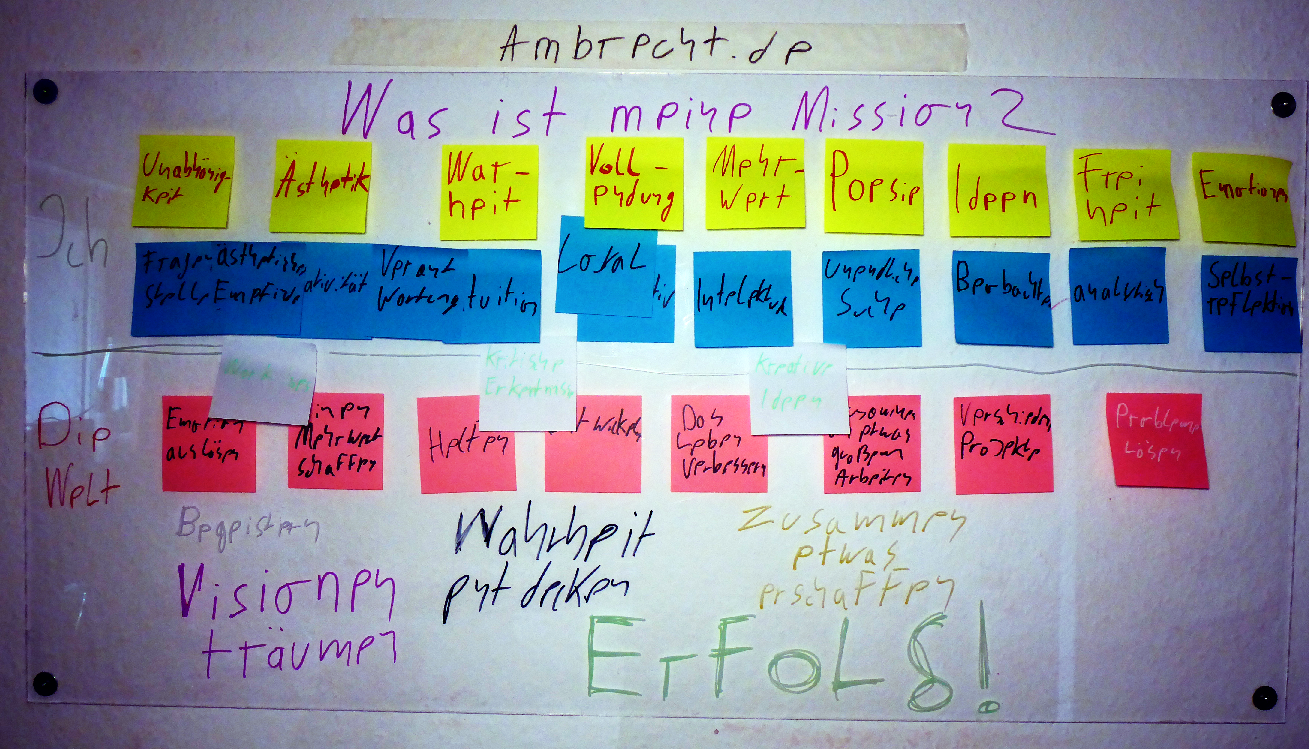 Ambrecht.de
Was ist meine Mission?
Ich
Unabhänig-
keit
Ästhetik
War-
heit
Voll-
endung
Mehr-
Wert
Poesie
Ideen
Frei
heit
Emotionen
Fragen
Stelle
ästhetisches
Empfinden
ativität
Verant
Wortung
tuition
Loyal
tiv
Intelektuel
Unendliche
Suche
Beobachten
analytisch
Selbst-
reflektion
Kritishe
Erkentniss
Kreative
Ideen
Die
Welt
Emotion
auslösen
inen
Mehrwert
schaffen
Helfen
Das
Leben
Verbessern
etwas
großem
Arbeiten
Verschieden
Projekte
Probleme
Lösen
Begeistern
Visionen
träumen
Wahrheit
entdecken
Zusammen
etwas
erschaffen
ErFoLg!